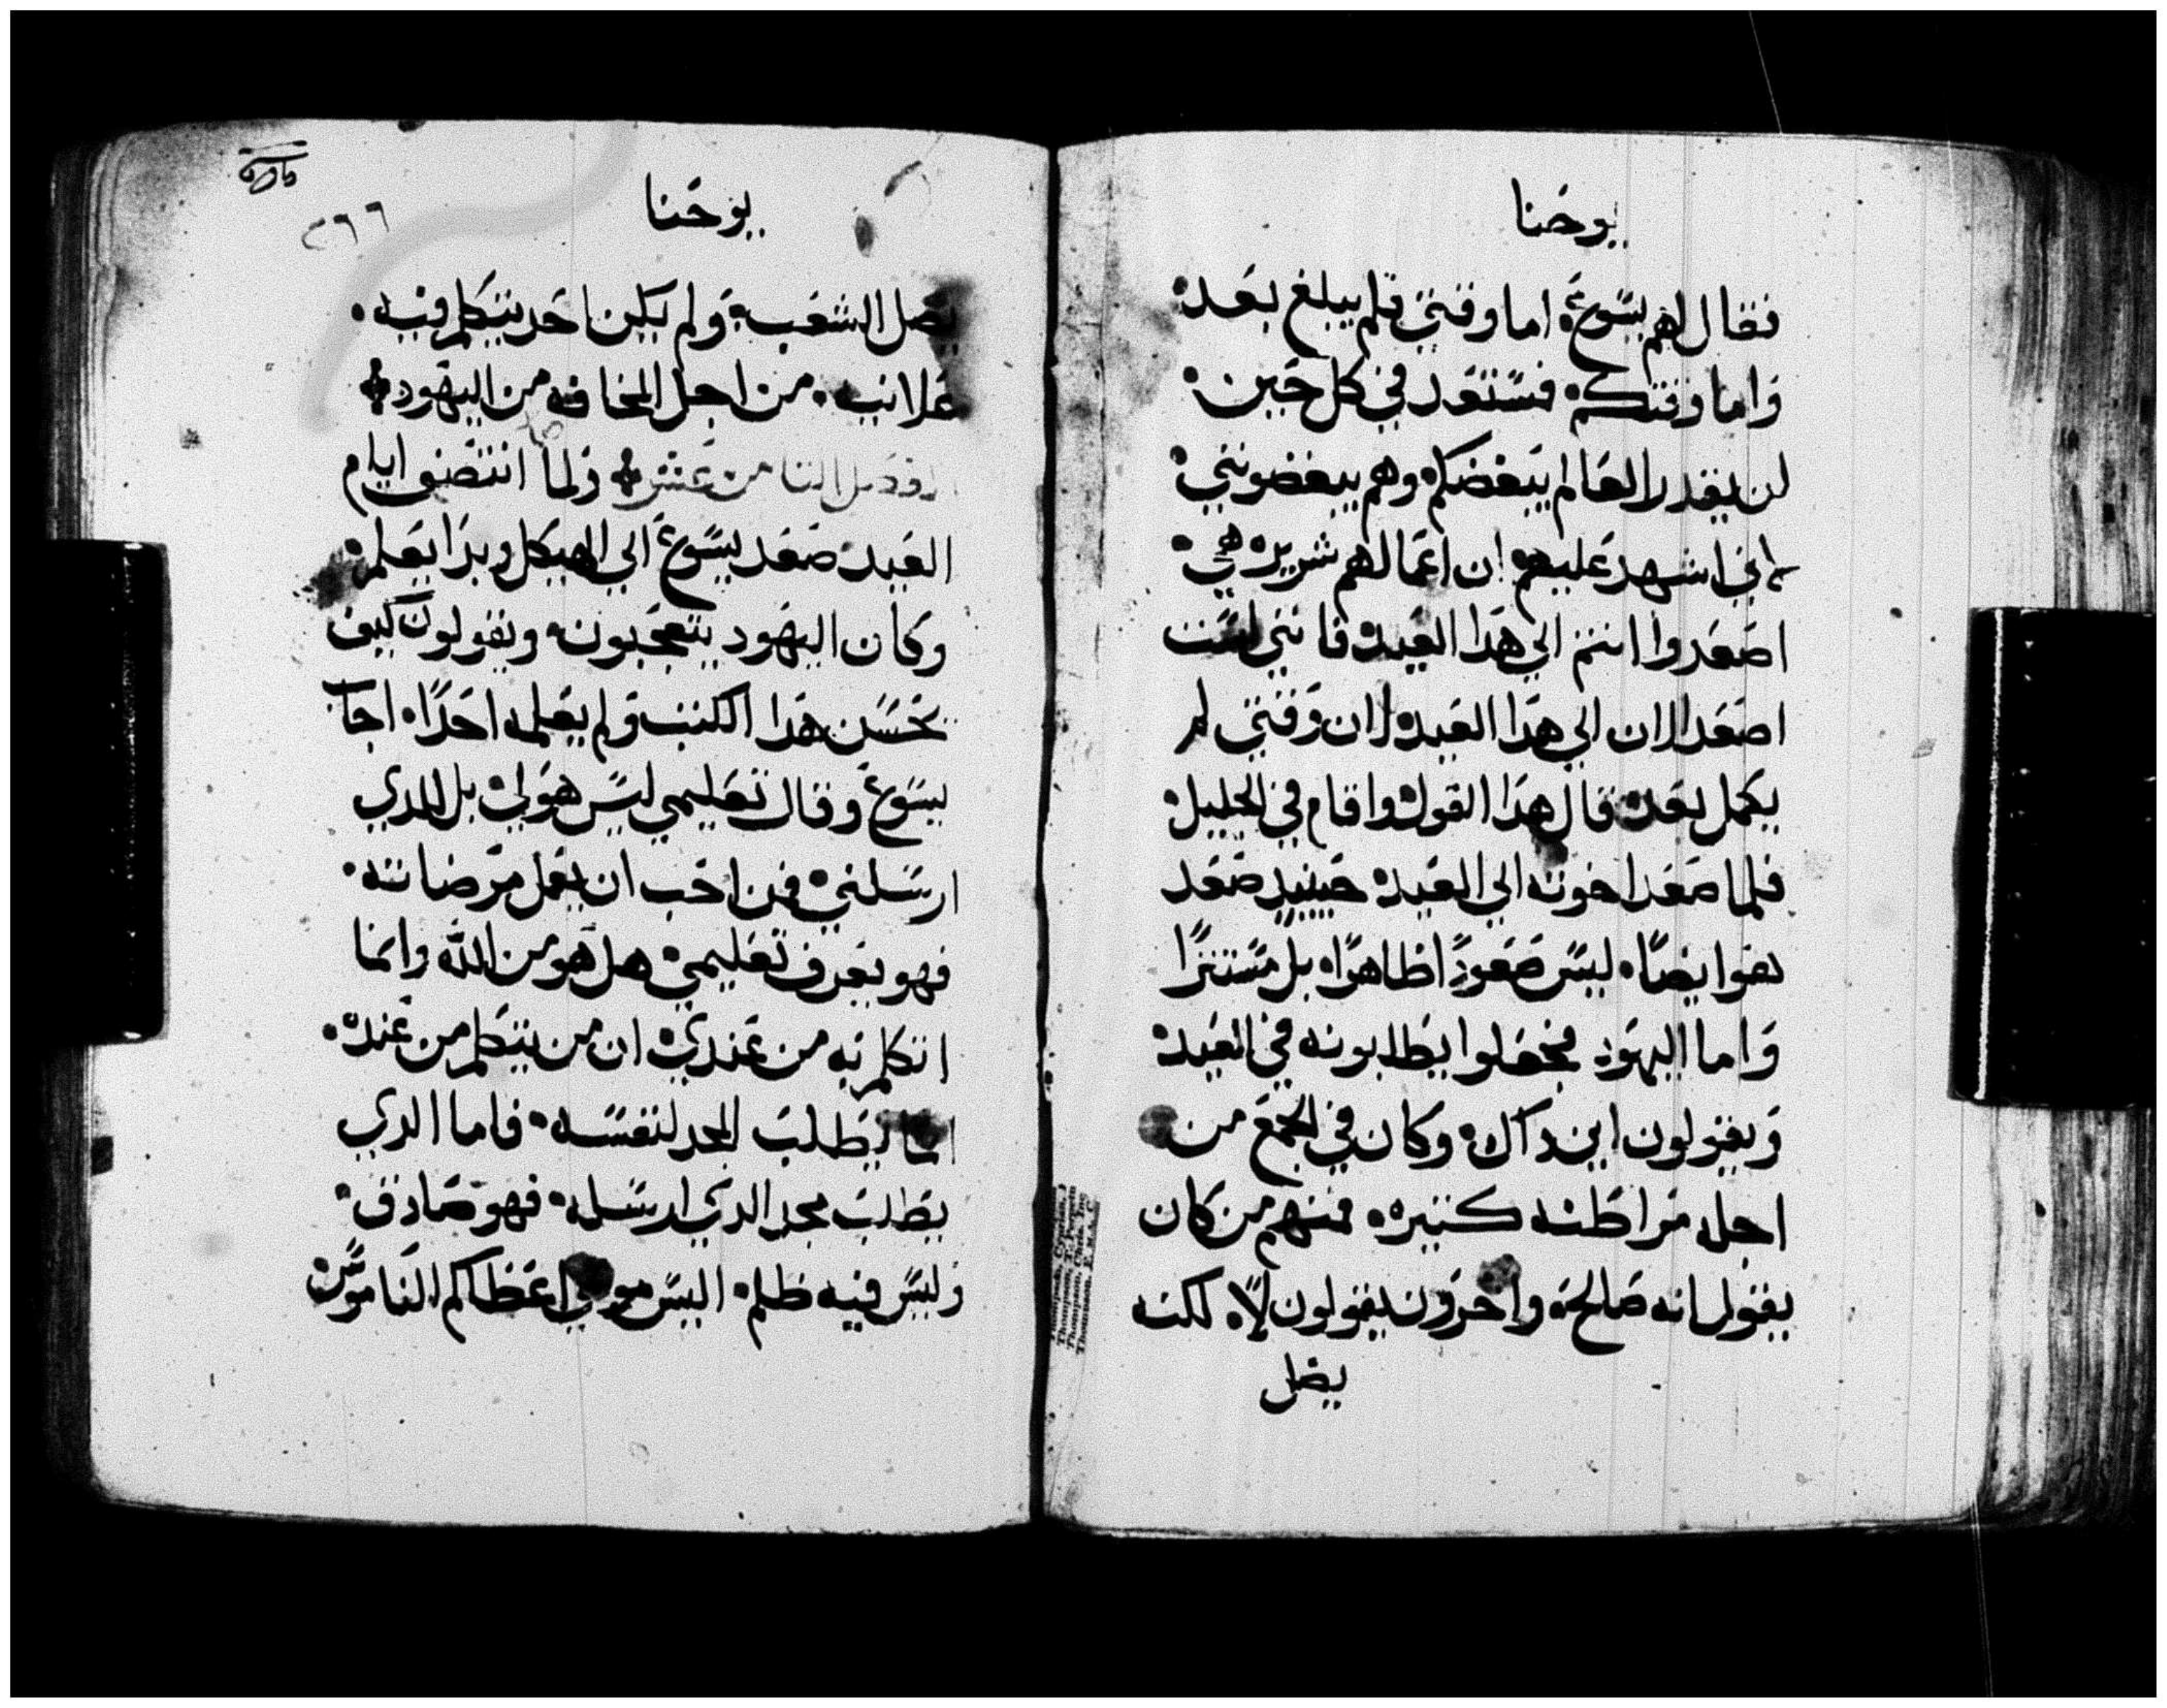 يوحنا
فقال لهم يسوع اما وقتي فلم يبلغ بعد
واما وقتكم فمستعد في كل حين
لن يقدر العالم يبغضكم وهم يبغضونني
لاني اشهد عليهم ان اعمالهم شريره هي
اصعدوا انتم الي هدا العيد فانني لست
اصعد الان الي هدا العيد لان وقتي لم
يكمل بعد قال هدا القول واقام في الجليل
فلما صعد اخوته الي العيد حينيد صعد
هو ايضًا ليس صعودًا ظاهرًا بل مستترًا
واما اليهود فجعلوا يطلبونه في العيد
ويقولون اين داك وكان في الجمع من
اجله مراطنه كثيره فمنهم من كان
يقول انه صالح واخرون يقولون لا لكنه
يضل
يوحنا
٢٦٦
يضل الشعب ولم يكن احد يتكلم فيه
علانيه من اجل المخافه من اليهود
الفصل الثامن عشر ولما انتصف ايام
العيد صعد يسوع الي الهيكل وبدا يعلم
وكان اليهود يتعجبون ويقولون كيف
يحسن هدا الكتب ولم يعلمه احدًا اجاب
يسوع وقال تعليمي ليس هو لي بل للدي
ارسلني فمن احب ان يعمل مرضاته
فهو يعرف تعليمي هل هو من الله وانما
اتكلم به من عندي ان من يتكلم من عنده
انما يطلب المجد لنفسه فاما الدي
يطلب مجد الدي ارسله فهو صادق
وليس فيه ظلم اليس موسي اعطاكم الناموس